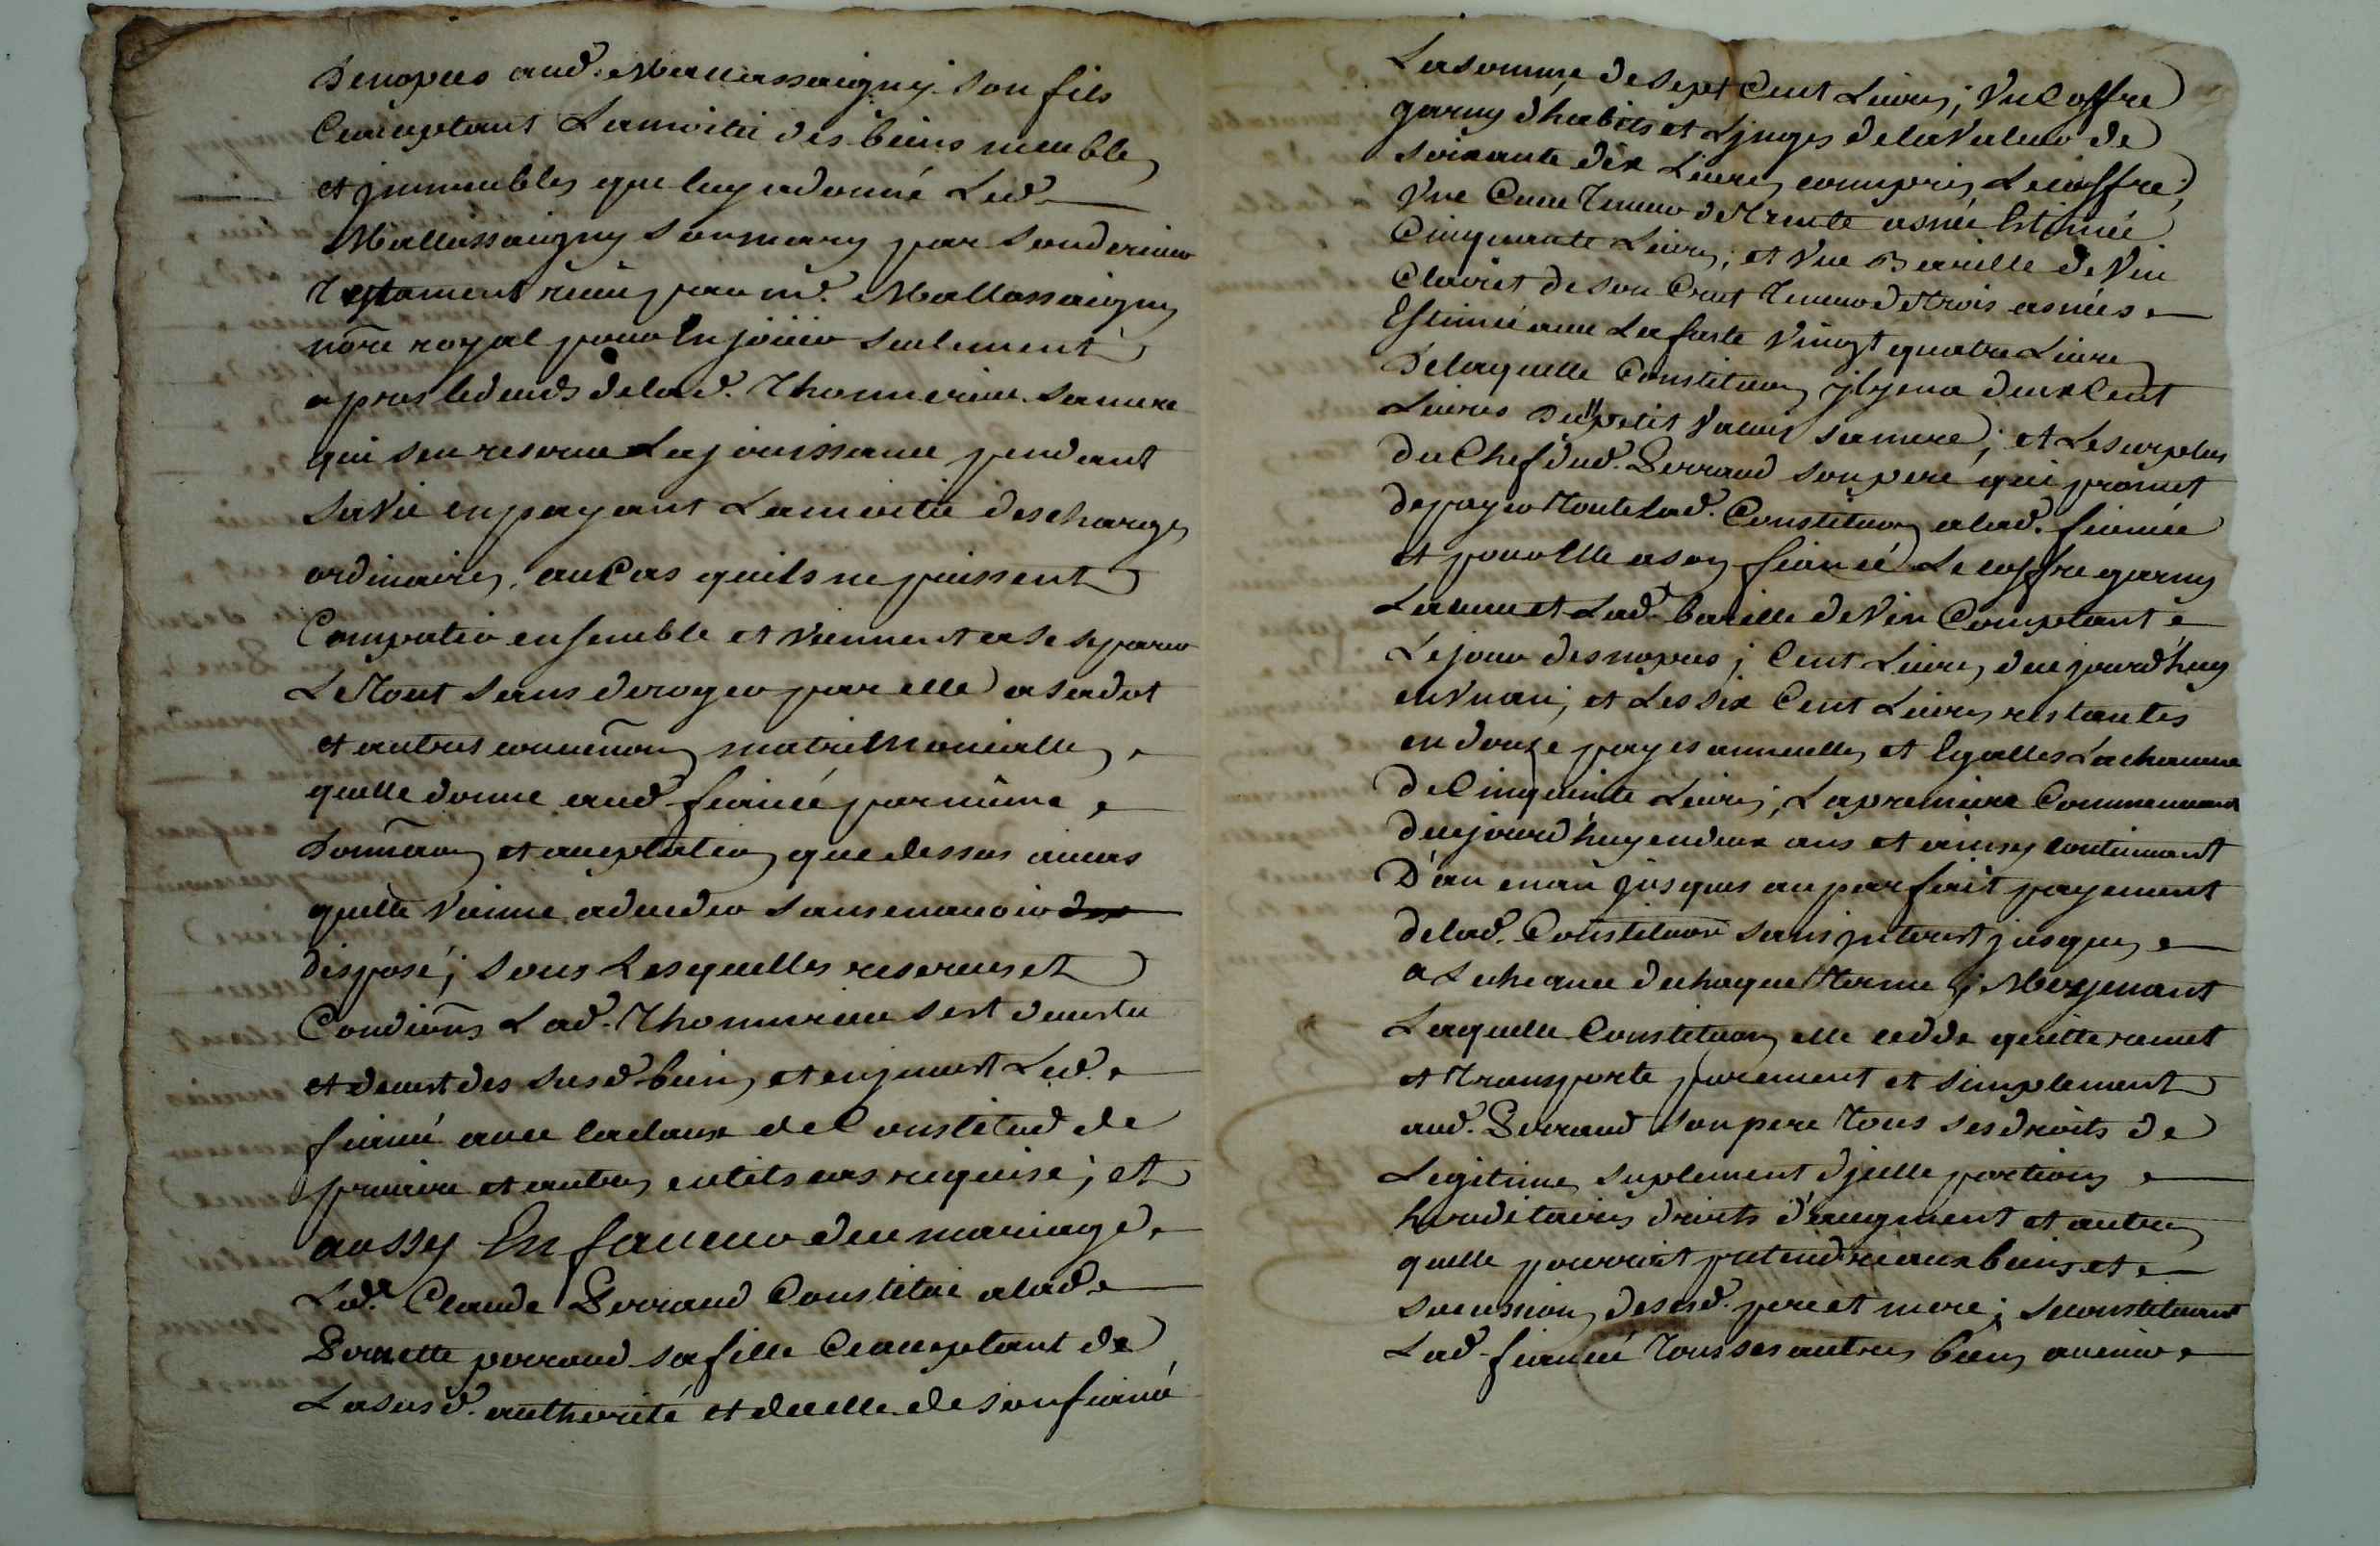 De nopces aud. Mallassaigny son fils
Ceacceptant La moitié des biens meubles
et jmmeubles que luy a donné Led.
Mallassaigny son mary par son dernier
Testament receu par me. Mallassaigny
nore royal pour En joüir seulement
apres le deceds de lad. Thomerieu sa mere
qui sen reserve La jouissance pendant
sa vie en payant La moitié des charges
ordinaires, au Cas quils ne puissent
Compatir ensemble et viennent a se separer
Le Tout sans deroger par elle a sa dot
et autres convenõns matrimonialles
quelle donne aud fiancé par même
Donnãon et acceptation que dessus au cas
quelle vienne a deceder sans en avoir
disposé; Sous Lesquelles reserves et
Condiõns Lad. Thomerieu s'est devestu
et devest des susd. biens et en jnvest Led.
fiancé avec la clause de Constitud de
precaire et autres en tels cas requise; et
aussy En faveur du mariage
Led. Claude Perraud Constitue a lad
Pernette perraud sa fille Ceacceptant de
La susd. authorité et de celle de son fiancé
La somme de sept Cent Livres; Vn Coffre
garny d'habits et Linges de la Valeur de
soixante dix Livres compris Le coffre;
Vne Cuve Teneur de Trente asnée Estimée
Cinquante Livres; et Vne Bareille de Vin
Clairet de son Crut Teneur de Trois asnées
Estimée avec La fuste Vingt quatre Livres
De laquelle Constituõn jl y en a deux Cent
Livres Du petit Vacuis sa mere; et Le surplus
du Chef dud. Perraud son pere qui promet
de payer Toute Lad. Constituõn a lad. fiancée
et pour Elle a son fiancé Le coffre garny
La cuve et Lad. bareille de Vin Comptant
Le jour des nopces; Cent Livres du jourd'huy
en Vn an; et Les six Cent Livres restantes
en douze payes annuelles et Egalles La chacune
de Cinquante Livres; La premiere Commencant
du jourd'huy en deux ans et ainsy Continuant
D'an en an jusques au parfait payement
de lad. Constituõn sans jnterest jusques
a L'echeance de chaque Terme; Moyenant
Laquelle Constituõn elle cedde quitte remet
et Transporte purement et simplement
aud. Perraud son pere Tous ses droits de
Legitime, suplement d'jcelle portions
hereditaires droits d'augment et autres
quelle pourroit pretendre aux biens et
succession, de sesd. pere et mere; se constituant
Lad. fiancée Tous ses autres biens avenir